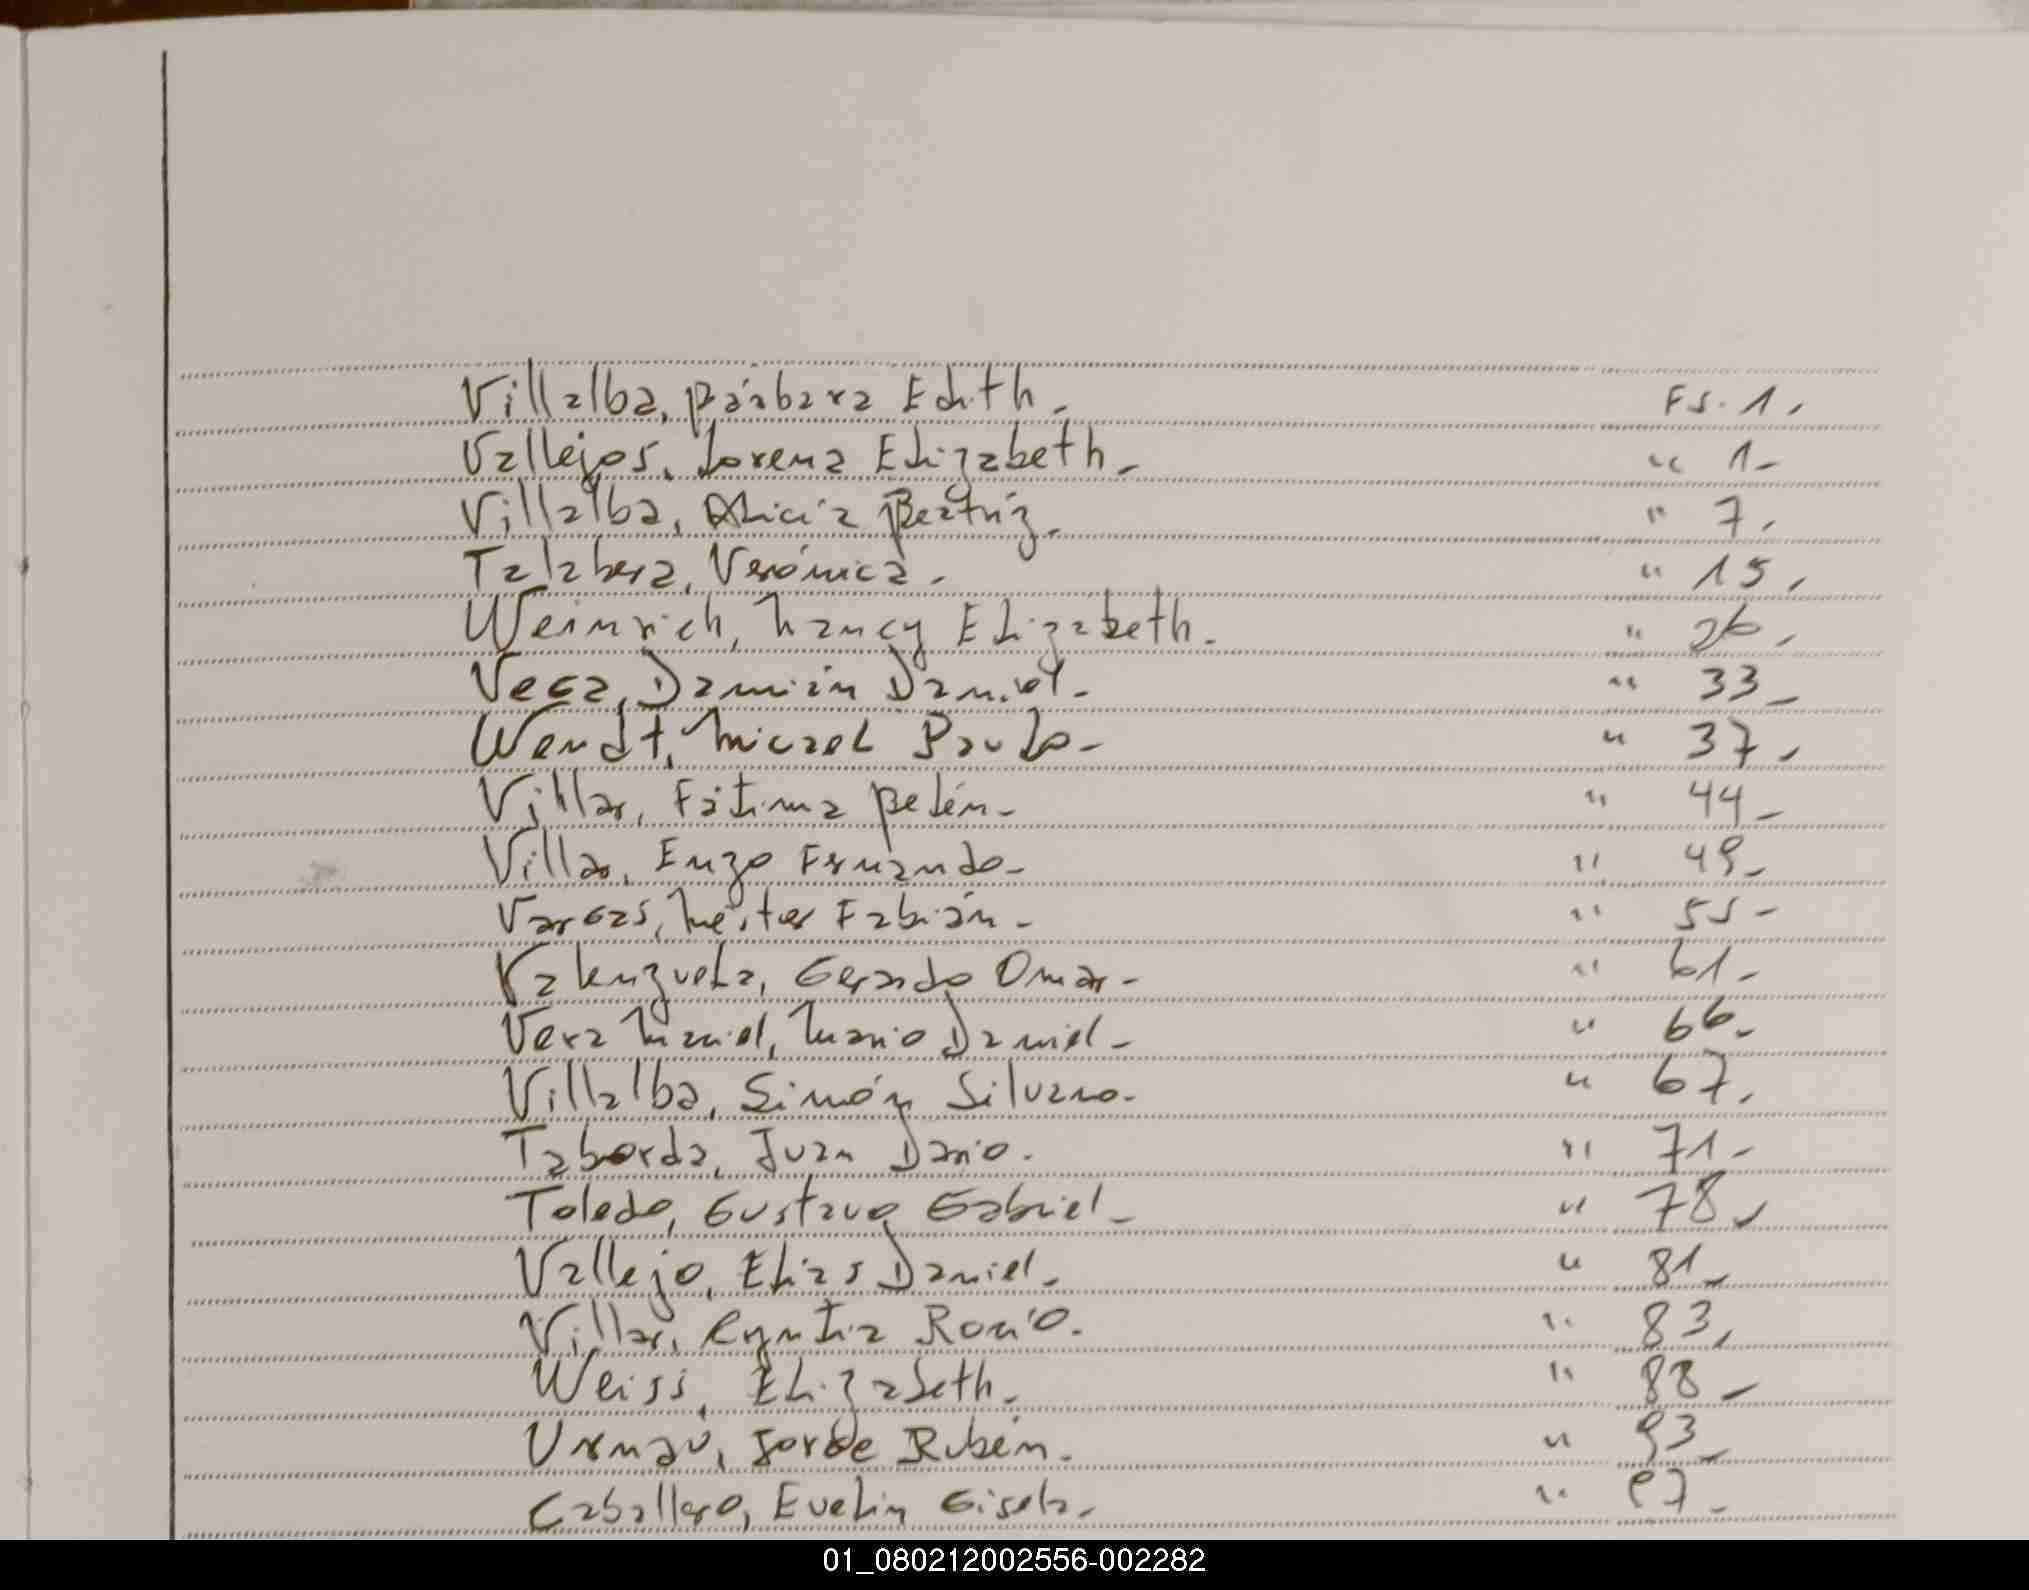 Villalba, Bárbara Edith. Fs. 1.
Vallejos, Lorena Elizabeth. " 1-
Villalba, Alicia Beatríz. " 7.
Talabera, Verónica. " 15.
Weinrich, Nancy Elizabeth. " 26.
Vega, Damián Daniel. " 33-
Wendt, Micael Paulo- " 37.
Villar, Fátima Belén- " 44-
Villar, Enzo Fernando- " 49-
Vargas, Néstor Fabián- " 55-
Valenzuela, Gerardo Omar- " 61-
Vera Maciel, Mario Daniel- " 66-
Villalba, Simón Silvano- " 67.
Taborda, Juan Dario. " 71-
Toledo, Gustavo Gabriel- " 78-
Vallejo, Elias Daniel- " 81-
Villar, Cyntia Rocío. " 83.
Weiss, Elizabeth. " 88-
Urnau, Jorge Rubén. " 93-
Caballero, Evelin Gisela- " 97-
01_080212002556-002282